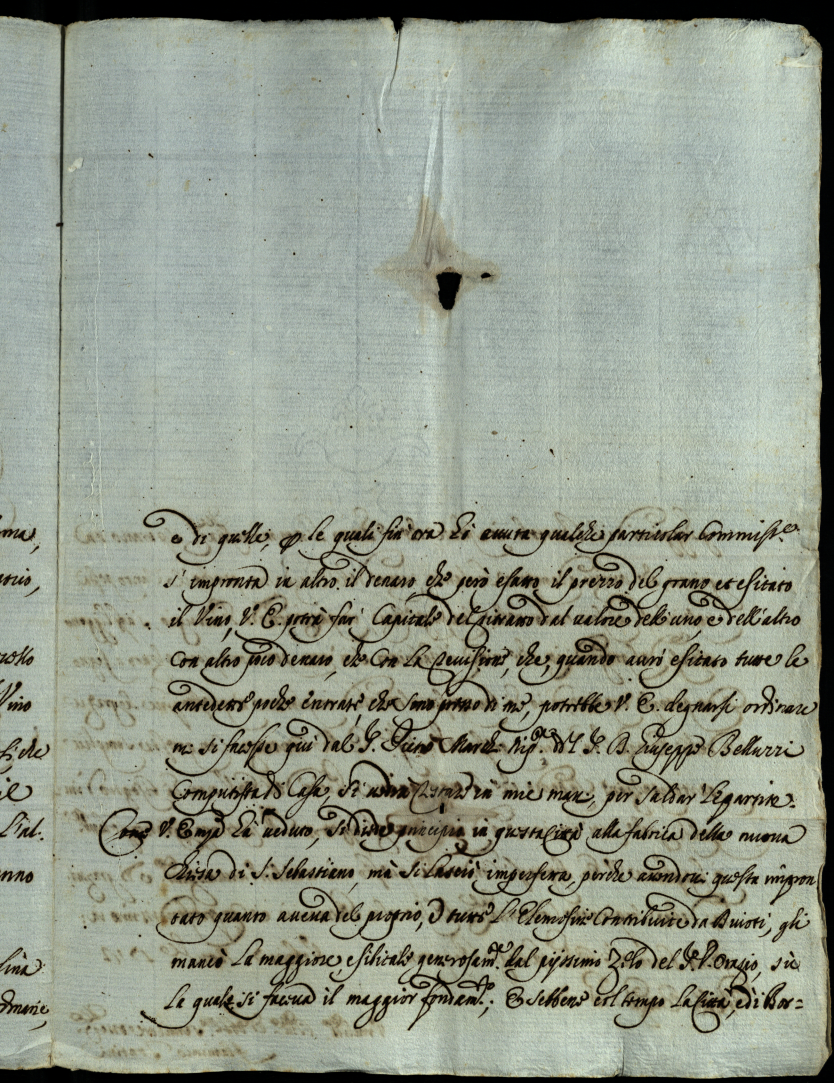 ma,
e di quelle, p le quali sin'ora hò auuta qualche particolar Commiss.e
s'impronta in altro il denaro, che però esatto il prezzo del grano et esitato
il Vino, V. E. potrà far Capitale del ritratto dal valore dell'uno, e dell'altro
con altro poco denaro, che con la che, quando aurò esitato tutte le
Vino
antedette poche entrate, che sono presso di me, potrebbe V. E. degnarsi ordinare
si che
me si facesse qui dal S. March. S. Giuseppe Belluzzi
il
Computista di Casa, in mie man, per saldar le partite.
L'al-
Come V. Enza hà ueduto, si diede principio in questa Città alla fabrica della nuoua
anno
Chiesa di S. Sebastiano, mà si lasciò imperfetta, perche auendoui questa impron
tato quanto aueua del proprio, e tutte l'Elemosine Contribuite da Diuoti, gli
lina
mancò la maggiore esibitale generosam.te dal pijssimo Zelo del S. P. Orazio, sù
la quale si faceua il maggior fondam.to; e sebbene col tempo la Città, e di Bor=